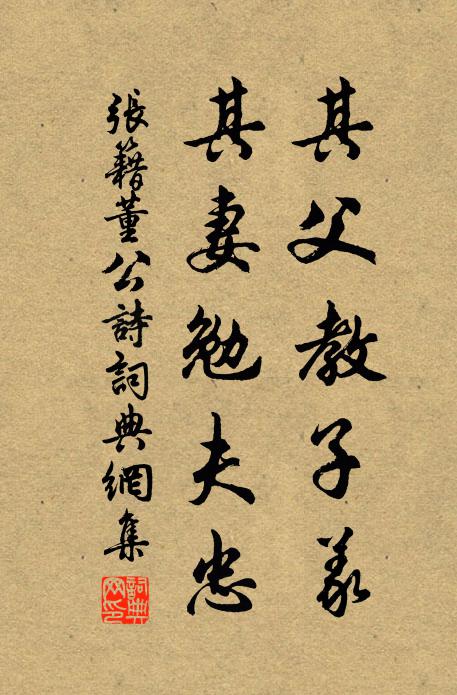 其父教子義
其妻勉夫忠
張籍董公詩詞典網集
詞典网印